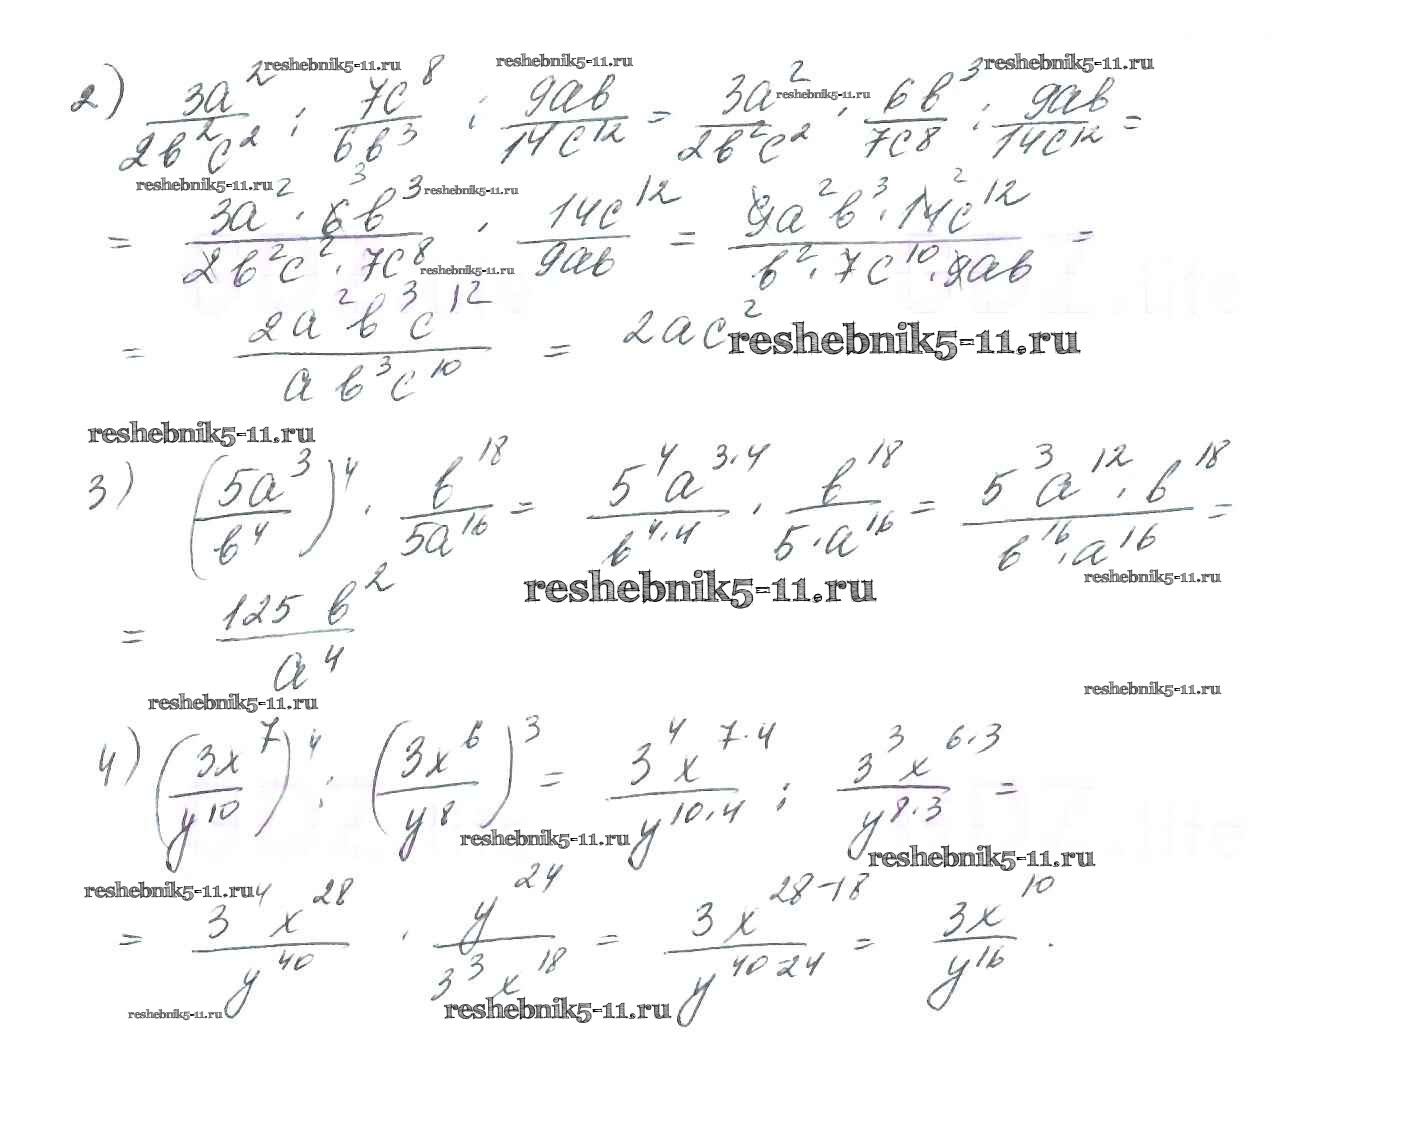 reshebnik5-11.ru reshebnik5-11.ru reshebnik5-11.ru reshebnik5-11.ru
2) 3a²/2b²c² : 7c⁸/6b³ : 9ab/14c¹² = 3a²/2b²c² · 6b³/7c8 : 9ab/14c¹² =
reshebnik5-11.ru reshebnik5-11.ru
= 3a²·6b³/2b²c²·7c⁸ · 14c¹²/9ab = 9a²b³·14c¹²/b²·7c¹⁰·9ab =
reshebnik5-11.ru
= 2a²b³c¹²/ab³c¹⁰ = 2ac²
reshebnik5-11.ru
reshebnik5-11.ru
3) (5a³/b⁴)⁴ · b¹⁸/5a¹⁶ = 5⁴a³·⁴/b⁴·⁴ · b¹⁸/5·a¹⁶ = 5³a¹²·b¹⁸/b¹⁶·a¹⁶ =
reshebnik5-11.ru reshebnik5-11.ru
= 125b²/a⁴
reshebnik5-11.ru reshebnik5-11.ru
4) (3x⁷/y¹⁰)⁴ : (3x⁶/y⁸)³ = 3⁴x⁷·⁴/y¹⁰·⁴ : 3³x⁶·³/y⁸·³ =
reshebnik5-11.ru reshebnik5-11.ru
reshebnik5-11.ru
= 3⁴x²⁸/y⁴⁰ · y²⁴/3³x¹⁸ = 3x²⁸⁻¹⁸/y⁴⁰⁻²⁴ = 3x¹⁰/y¹⁶.
reshebnik5-11.ru reshebnik5-11.ru